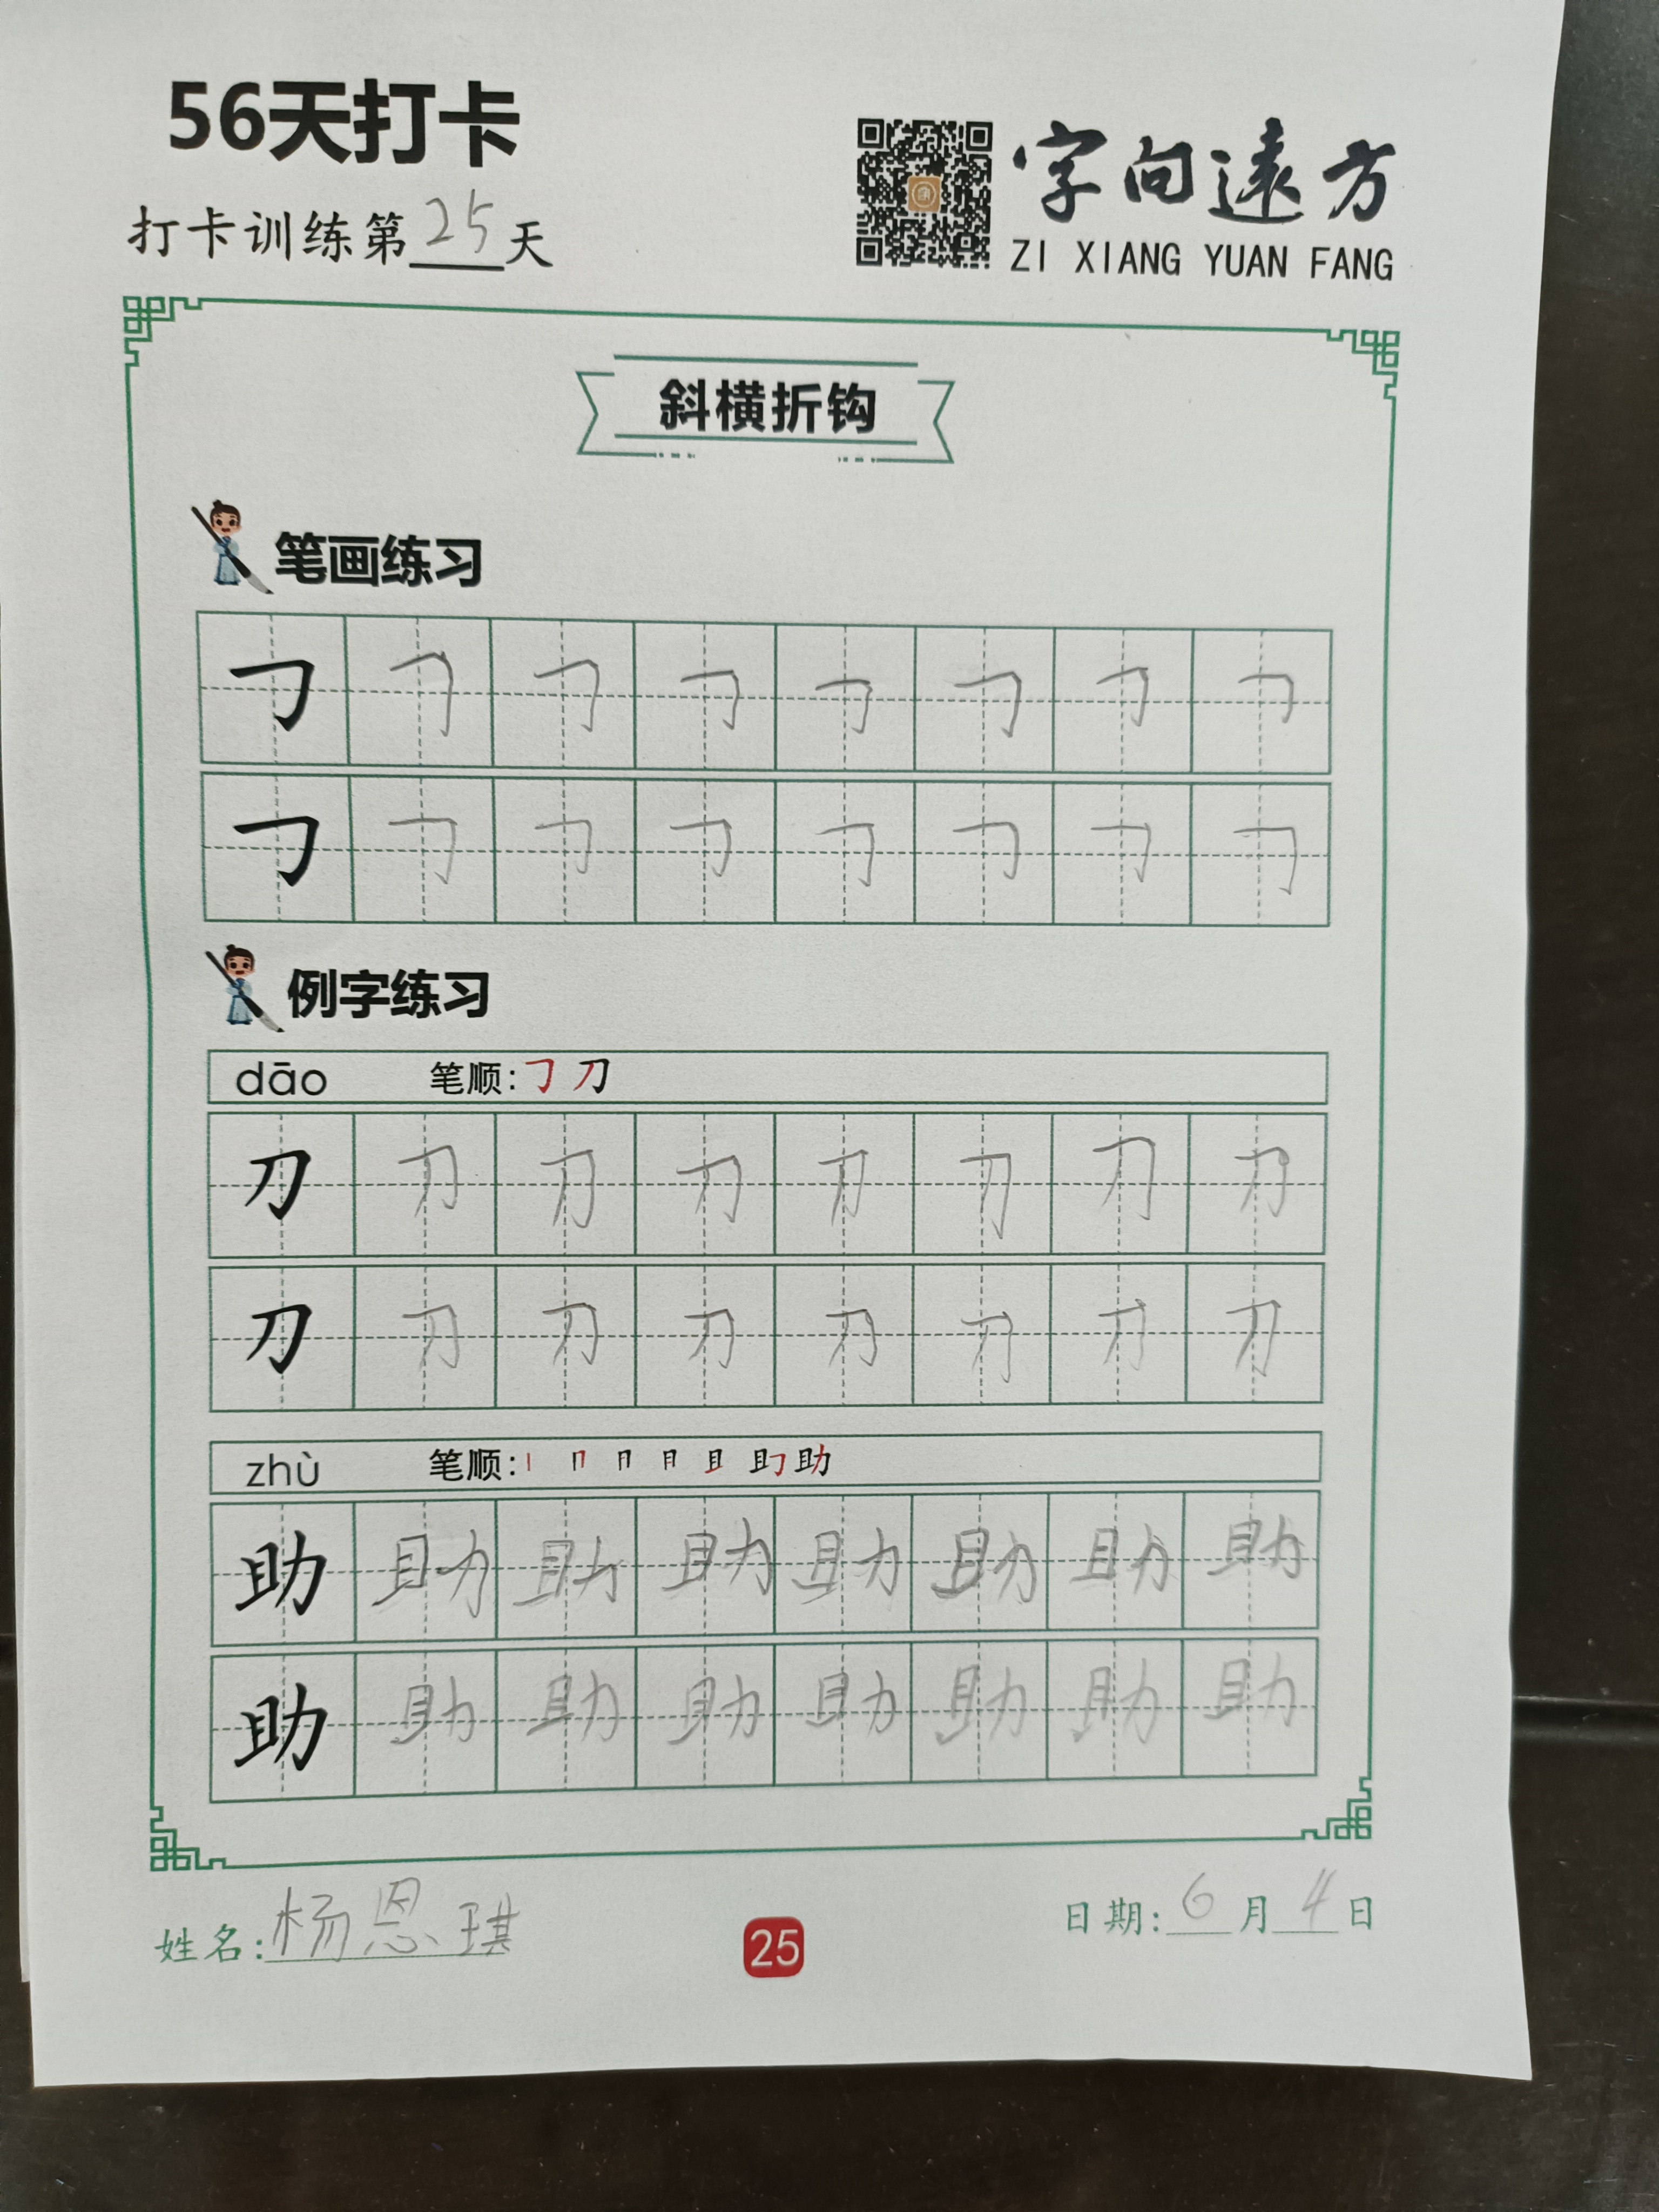 56天打卡
打卡训练第25天
字向遠方
ZI XIANG YUAN FANG
斜横折钩
笔画练习
𠃌 𠃌 𠃌 𠃌 𠃌 𠃌 𠃌 𠃌
𠃌 𠃌 𠃌 𠃌 𠃌 𠃌 𠃌 𠃌
例字练习
dāo 笔顺:𠃌 刀
刀 刀 刀 刀 刀 刀 刀 刀
刀 刀 刀 刀 刀 刀 刀 刀
zhù 笔顺:丨 冂 月 且 助
助 助 助 助 助 助 助 助
助 助 助 助 助 助 助 助
姓名:杨恩琪
25
日期:6月4日